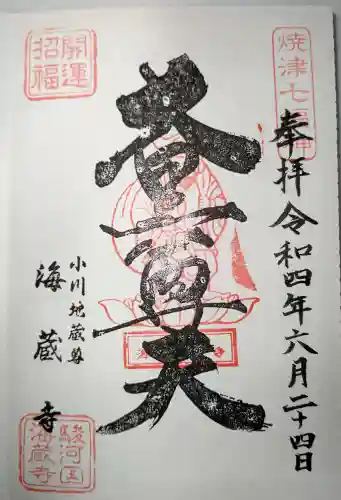 焼津七福神
奉拝 令和四年六月二十四日
大黒尊天
小川地蔵尊
海蔵寺
開運
招福
駿河国
海蔵寺